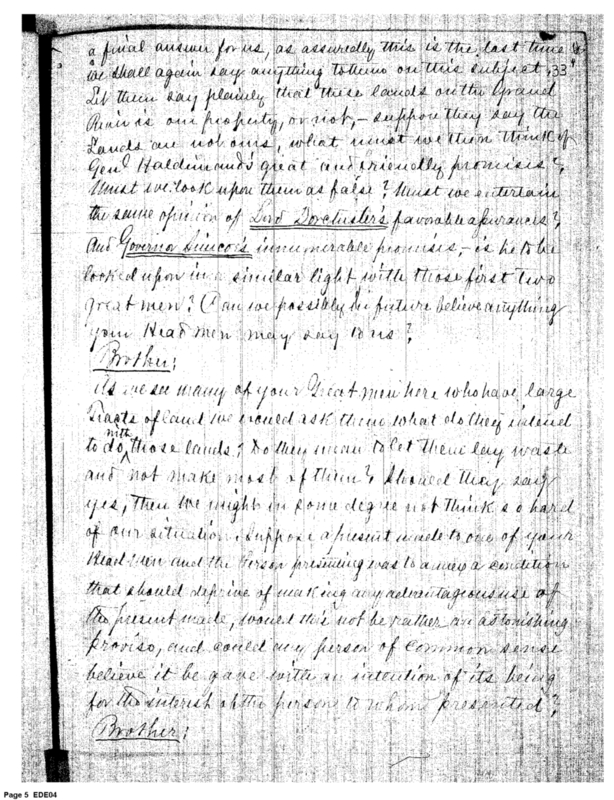 a final answer for us, as assuredly this is the last time
we shall again say anything to them on this subject, 33
Let them say plainly that these lands on the Grand
River is our property, or not, - suppose they say the
Lands are not ours, what must we then think of
Genl. Haldimand's great and friendly promises?
Must we look upon them as false? Must we entertain
the same opinion of Lord Dorchester's favorable assurances?
And Governor Simcoe's innumerable promises, - is he to be
looked upon in a similar light with those first two
great men? Can we possibly in future believe anything
your Head men may say to us?
Brother;
As we see many of your Great men here who have large
Tracts of land we would ask them what do they intend
to do with those lands? Do they mean to let them lay waste
and not make most of them? Should they say
yes, then we might in some degree not think so hard
of our situation. Suppose a present made to one of your
Head Men and the Person presenting was to annex a condition
that should deprive of making any advantageous use of
the present made, would this not be rather an astonishing
proviso, and could any person of common sense
believe it be gave with an intention of its being
for the interest of the person to whom presented?
Brother;
Page 5 EDE04